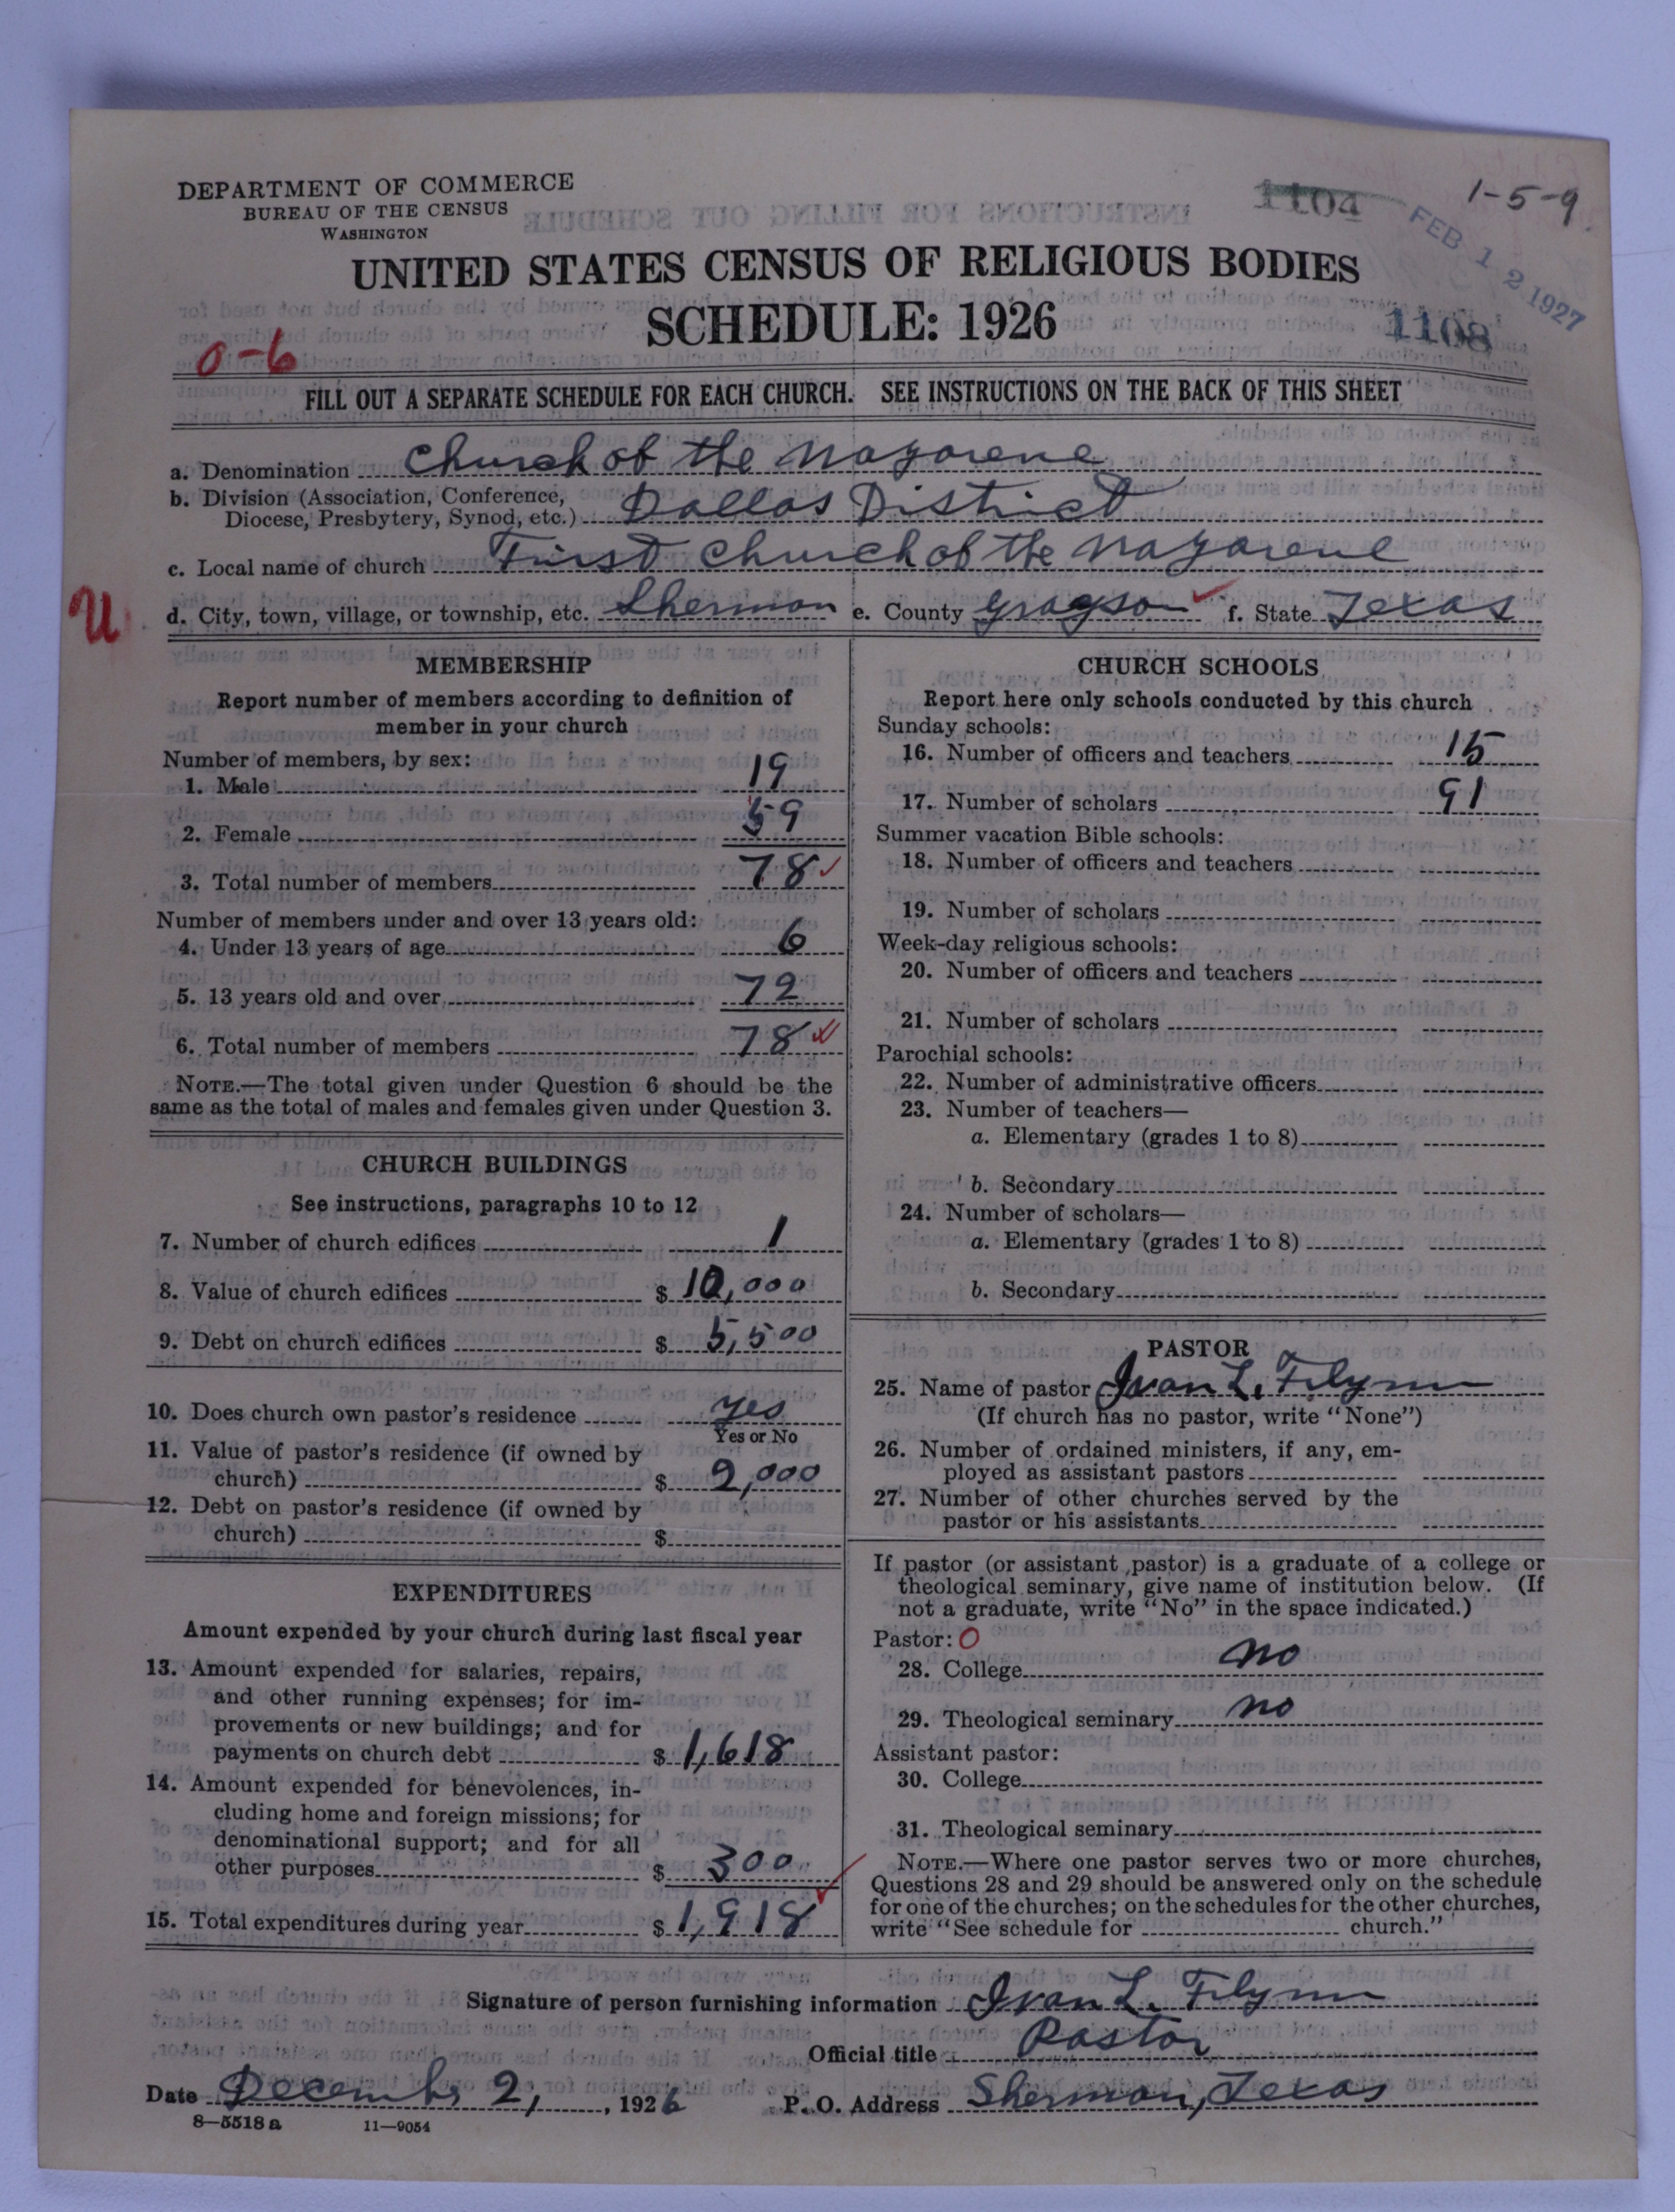 DEPARTMENT OF COMMERCE
BUREAU OF THE CENSUS
WASHINGTON
1104
1-5-9
FEB 12 1927
UNITED STATES CENSUS OF RELIGIOUS BODIES
SCHEDULE: 1926
1108
0-6
FILL OUT A SEPARATE SCHEDULE FOR EACH CHURCH. SEE INSTRUCTIONS ON THE BACK OF THIS SHEET
a. Denomination Church of the Nazarene
b. Division (Association, Conference,
Diocese, Presbytery, Synod, etc.) Dallas District
c. Local name of church First Church of the Nazarene
U
d. City, town, village, or township, etc. Sherman e. County Grayson f. State Texas
MEMBERSHIP
Report number of members according to definition of
member in your church
Number of members, by sex:
1. Male 19
2. Female 59
3. Total number of members 78
Number of members under and over 13 years old:
4. Under 13 years of age 6
5. 13 years old and over 72
6. Total number of members 78
NOTE.—The total given under Question 6 should be the
same as the total of males and females given under Question 3.
CHURCH BUILDINGS
See instructions, paragraphs 10 to 12
7. Number of church edifices 1
8. Value of church edifices $ 10,000
9. Debt on church edifices $ 5,500
10. Does church own pastor's residence yes
Yes or No
11. Value of pastor's residence (if owned by
church) $ 2,000
12. Debt on pastor's residence (if owned by
church) $
EXPENDITURES
Amount expended by your church during last fiscal year
13. Amount expended for salaries, repairs,
and other running expenses; for im-
provements or new buildings; and for
payments on church debt $ 1,618
14. Amount expended for benevolences, in-
cluding home and foreign missions; for
denominational support; and for all
other purposes $ 300
15. Total expenditures during year $ 1,918
CHURCH SCHOOLS
Report here only schools conducted by this church
Sunday schools:
16. Number of officers and teachers 15
17. Number of scholars 91
Summer vacation Bible schools:
18. Number of officers and teachers
19. Number of scholars
Week-day religious schools:
20. Number of officers and teachers
21. Number of scholars
Parochial schools:
22. Number of administrative officers
23. Number of teachers—
a. Elementary (grades 1 to 8)
b. Secondary
24. Number of scholars—
a. Elementary (grades 1 to 8)
b. Secondary
PASTOR
25. Name of pastor Ivan L. Flynn
(If church has no pastor, write "None")
26. Number of ordained ministers, if any, em-
ployed as assistant pastors
27. Number of other churches served by the
pastor or his assistants
If pastor (or assistant pastor) is a graduate of a college or
theological seminary, give name of institution below. (If
not a graduate, write "No" in the space indicated.)
Pastor: O
28. College no
29. Theological seminary no
Assistant pastor:
30. College
31. Theological seminary
NOTE.—Where one pastor serves two or more churches,
Questions 28 and 29 should be answered only on the schedule
for one of the churches; on the schedules for the other churches,
write "See schedule for church."
Signature of person furnishing information Ivan L. Flynn
Official title Pastor
Date December 2, 1926 P. O. Address Sherman, Texas
8—5518 a 11—9054